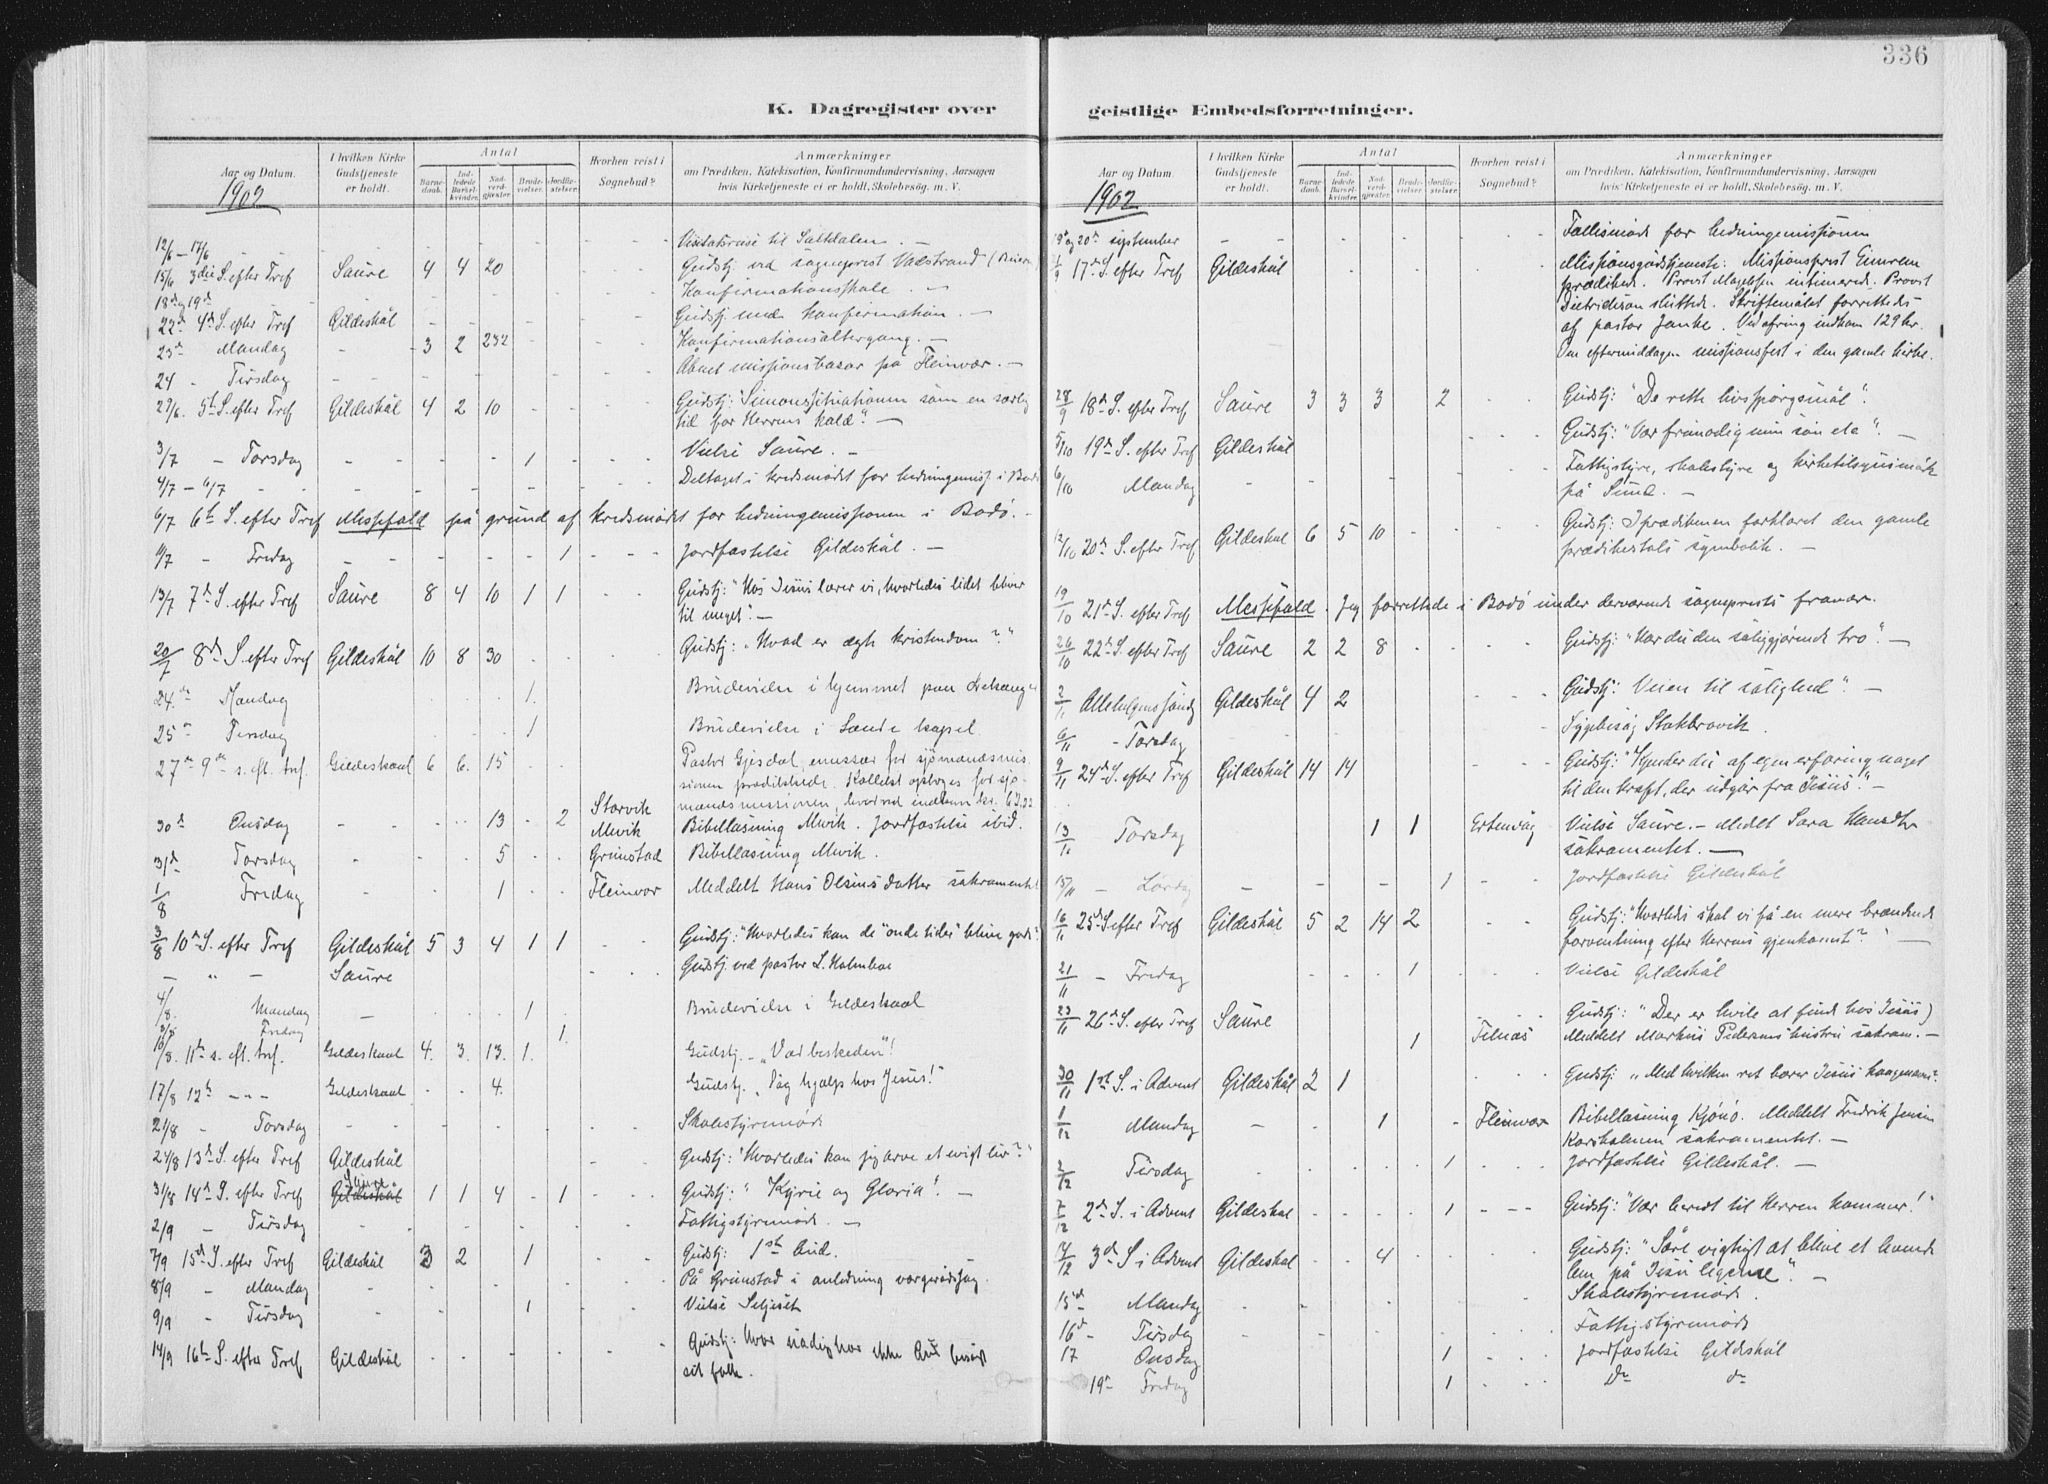 336
K. Dagregister over
geistlige Embedsforretninger.
Aar og Datum.
I hvilken Kirke Gudstjeneste er holdt.
Antal
Barnedaab.
Indledede Barselkvinder.
Nadverdgjester.
Brudevielser.
Jordfæstelser.
Hvorhen reist i Sognebud?
Anmærkninger
om Prædiken, Katekisation, Konfirmandundervisning, Aarsagen
hvis Kirketjeneste ei er holdt, Skolebesøg. m. V.
1902
12/6 – 17/6 Visitatsreise til Saltdalen. –
15/6 3die S. efter Tref Saure 4 4 20 Gudstj. ved sogneprest Valstrand
18de og 19de Konfirmationsskole. –
22de 4de S. efter Tref Gildeskål Gudstj. med Konfirmation. –
23de Mandag 3 2 232 Konfirmationsaltergang. –
24 – Tirsdag Åbnet missionsbasar på Fleinvær. –
29/6. 5te S. efter Tref Gildeskål 4 2 10 Gudstj: "Simonssituationen som en særlig
tid for Herrens kald". –
3/7 – Torsdag 1 Vielse Saure. –
4/7 – 6/7 Deltaget i kredsmødet for hedningemiss. i Bodø
6/7 6te S. efter Tref Messefald på grund af kredsmødet for hedningemissionen i Bodø. –
11/7 – Fredag 1 Jordfæstelse Gildeskål. –
13/7 7de S. efter Tref Saure 8 4 10 1 1 Gudstj: "Hos Jesus lærer vi, hvorledes lidet bliver
til meget". –
20/7 8de S. efter Tref Gildeskål 10 8 30 Gudstj: "Hvad er ægte kristendom?"
24de Mandag 1. Brudevielse i hjemmet paa
25de Tirsdag 1 Brudevielse i Sande kapel
27de 9de s. eft. tref. Gildeskaal 6 6. 15 Pastor Gjesdal, emissær for sjömandsmis
sionen prædikede. Kollekt optoges for sjö
mandsmissionen, hvorved indkom kr.
30te Onsdag 13 2 Storvik
Mevik Bibellæsning Mevik. Jordfæstelse ibid.
31te Torsdag 5 Grimstad Bibellæsning Mevik.
1/8 Fredag 1 Fleinvær Meddelt Hans Olsens datter sakramentet
3/8 10de S. efter Tref Gildeskål 5 3 4 1 1 Gudstj: "Hvorledes kan de "onde tider" blive gode".
– " – Saure Gudstj. ved pastor L. Holmboe
4/8. Mandag – 1 Brudevielse i Gildeskaal
Fredag 1.
10/8. 11te s. eft. tref. Gildeskaal 4. 3. 13. 1. Gudstj. – "Vær beskeden"!
17/8 12te – – – Gildeskaal 4. Gudstj. "Søg hjælp hos Jesus!"
21/8 – Torsdag Skolestyremøde
24/8 13de S. efter Tref Gildeskål Gudstj: "Hvorledes kan jeg arve et evigt liv?"
31/8 14de S. efter Tref Gildeskål Saure 1 1 4 – 1 Gudstj: "Kyrie og Gloria". –
2/9 – Tirsdag Fattigstyremøde. –
7/9 15de S. efter Tref Gildeskål 3 2 1 Gudstj: 1ste Bud.
8/9 – Mandag På Grimstad i anledning værgerådssag.
9/9 – Tirsdag 1 Vielse Seljeset
14/9 16te S. efter Tref Gildeskål Gudstj: Hvor nådig har ikke Gud besøgt
sit folk.
Aar og Datum.
I hvilken Kirke Gudstjeneste er holdt.
Antal
Barnedaab.
Indledede Barselkvinder.
Nadverdgjester.
Brudevielser.
Jordfæstelser.
Hvorhen reist i Sognebud?
Anmærkninger
om Prædiken, Katekisation, Konfirmandundervisning, Aarsagen
hvis Kirketjeneste ei er holdt, Skolebesøg. m. V.
1902
19de og 20de september Fællesmøde for hedningemissionen
17de S. efter Tref Gildeskål Missionsgudstjeneste: Missionsprest Einrem
prædikede. Provst Magelssen intimerede. Provst
Dietrichson sluttede. Skriftemålet forrettedes
af pastor Janke. Ved ofring indkom 129 kr.
Om eftermiddagen missionsfest i den gamle kirke.
28/9 18de S. efter Tref Saure 3 3 3 2 Gudstj: "De rette livsspørgsmål".
5/10 19de S. efter Tref Gildeskål Gudstj: "Vær frimodig min søn etc". –
6/10 Mandag Fattigstyre, skolestyre og kirketilsynsmøde
på Sund. –
12/10 20de S. efter Tref Gildeskål 6 5 10 Gudstj: I prædikenen forklaret den gamle
prædikestols symbolik. –
19/10 21de S. efter Tref Messefald. Jeg forrettede i Bodø under derværende sogneprests fravær.
26/10 22de S. efter Tref Saure 2 2 8 Gudstj: "Har du den saliggjørende tro". –
2/11 Allehelgenssøndag Gildeskål 4 2 Gudstj: Veien til salighed". –
6/11 – Torsdag Sygebesøg Stokkevik
9/11 24de S. efter Tref Gildeskål 14 14 Gudstj: "Kjender du af egen erfaring noget
til den kraft, der udgår fra Jesus". –
13/11 Torsdag 1 1 Ertenvåg Vielse Saure. – Meddelt Sara Hansdtr
sakramentet. –
15/11 – Lørdag 1 Jordfæstelse Gildeskål
16/11 25de S. efter Tref Gildeskål 5 2 14 2 Gudstj: "Hvorledes skal vi få en mere brændende
forventning efter Herrens gjenkomst?" –
21/11 – Fredag 1 Vielse Gildeskål
23/11 26de S. efter Tref Saure Gudstj: "Der er hvile at finde hos Jesus)
1 Felnæs Meddelt Markus Pedersens hustru sakram. –
30/11 1ste S. i Advent Gildeskål 2 1 Gudstj: "Med hvilken ret bærer Jesus kongenavn?
1/12 Mandag 1 Fleinvær Bibellæsning Kjønø. Meddelt Fredrik Jensen
Karsholmen sakramentet. –
2/12 Tirsdag 1 Jordfæstelse Gildeskål. –
7/12 2den S. i Advent Gildeskål 1 Gudstj: "Vær beredt til Herren kommer!"
14/12 3de S. i Advent Gildeskål 4 Gudstj: "Såre vigtigt at blive et levende
lem på Jesu legeme". –
15de Mandag Skolestyremøde.
16de – Tirsdag Fattigstyremøde
17 Onsdag 1 Jordfæstelse Gildeskål
19de Fredag 1 Do do